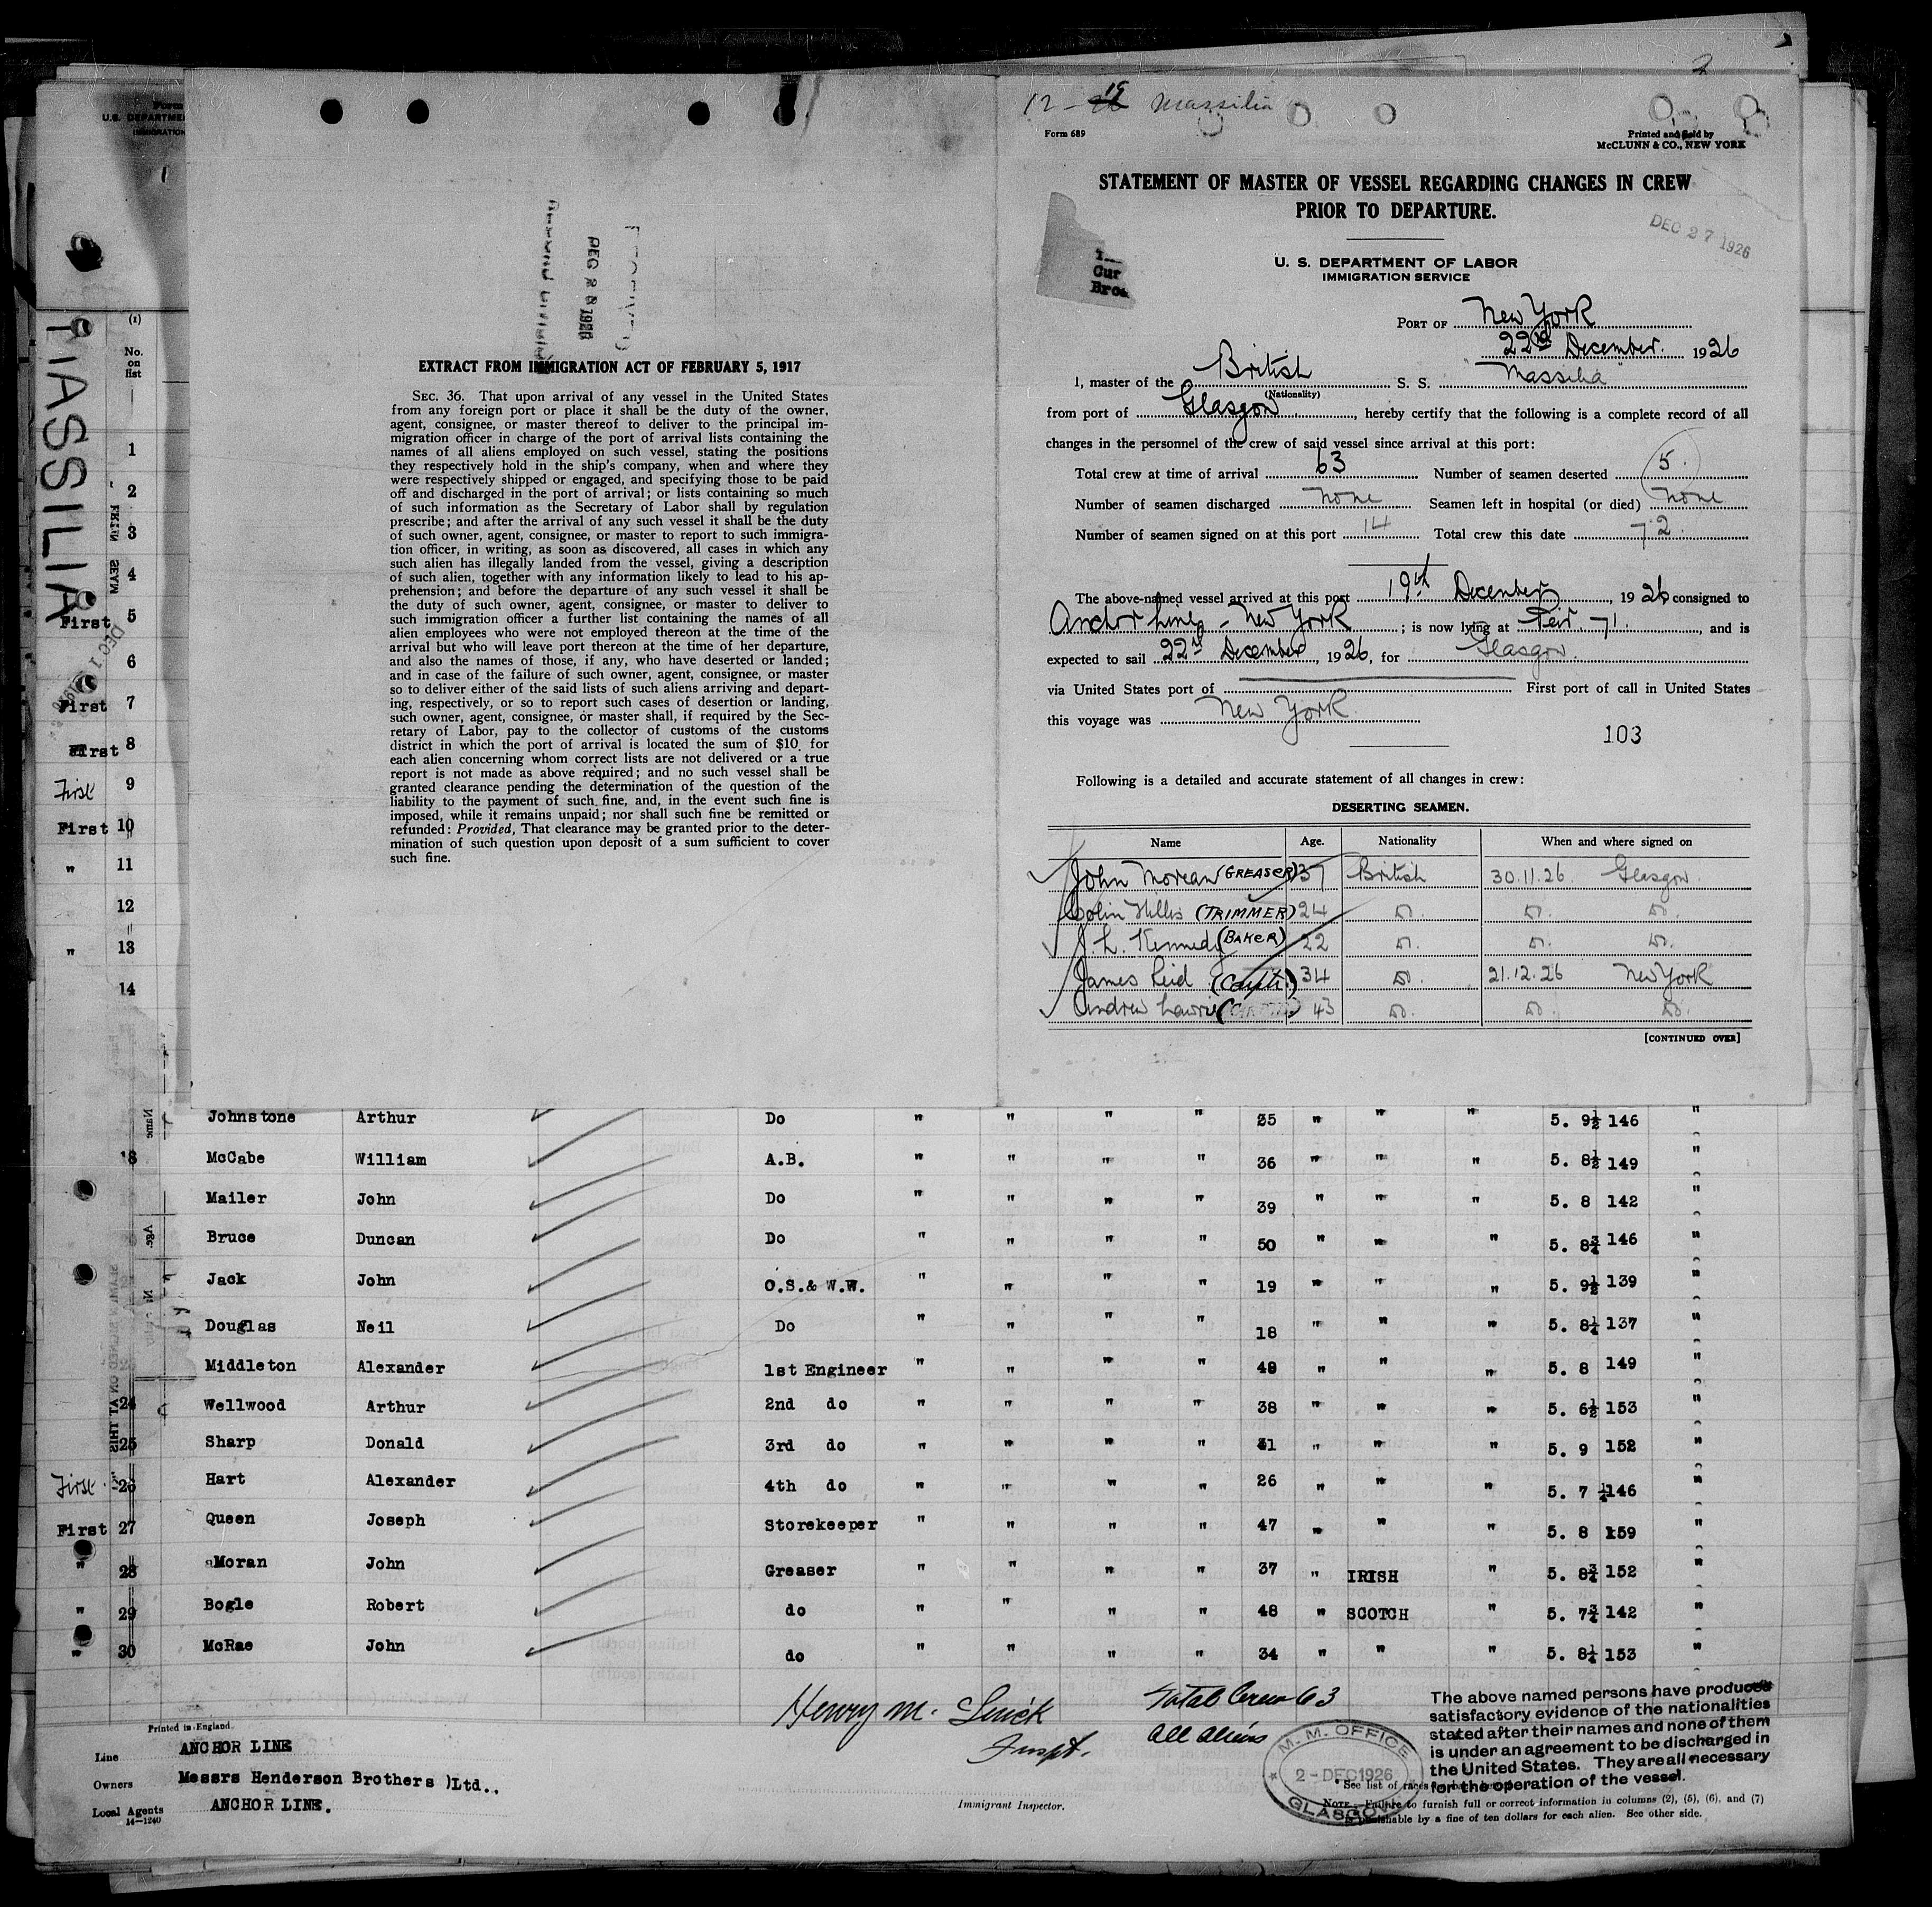 12-19 Massilia
2
Form 689
Printed and Sold by
McCLUNN & CO., NEW YORK
STATEMENT OF MASTER OF VESSEL REGARDING CHANGES IN CREW
PRIOR TO DEPARTURE.
DEC 27 1926
U. S. DEPARTMENT OF LABOR
IMMIGRATION SERVICE
PORT OF New York
22nd December. 1926
I, master of the British S. S. Massilia
(Nationality)
from port of Glasgow, hereby certify that the following is a complete record of all
changes in the personnel of the crew of said vessel since arrival at this port:
Total crew at time of arrival 63 Number of seamen deserted 5.
Number of seamen discharged None Seamen left in hospital (or died) None
Number of seamen signed on at this port 14 Total crew this date 72.
The above-named vessel arrived at this port 19th December, 1926, consigned to
Anchor Line - New York; is now lying at Peir. 71., and is
expected to sail 22nd December, 1926, for Glasgow.
via United States port of First port of call in United States
this voyage was New York
103
Following is a detailed and accurate statement of all changes in crew:
DESERTING SEAMEN.
Name Age. Nationality When and where signed on
John Morean (GREASER) 37 British 30.11.26. Glasgow.
Colin (TRIMMER) 24 Do. Do. Do.
J. L. Kennedy (BAKER) 22 Do. Do. Do.
James Reid 34 Do. 21.12.26 New York
Andrew Lawrie 43 Do. Do. Do.
[CONTINUED OVER]
Cur
Bro
DEC 28 1926
EXTRACT FROM IMMIGRATION ACT OF FEBRUARY 5, 1917
SEC. 36. That upon arrival of any vessel in the United States
from any foreign port or place it shall be the duty of the owner,
agent, consignee, or master thereof to deliver to the principal im-
migration officer in charge of the port of arrival lists containing the
names of all aliens employed on such vessel, stating the positions
they respectively hold in the ship's company, when and where they
were respectively shipped or engaged, and specifying those to be paid
off and discharged in the port of arrival; or lists containing so much
of such information as the Secretary of Labor shall by regulation
prescribe; and after the arrival of any such vessel it shall be the duty
of such owner, agent, consignee, or master to report to such immigra-
tion officer, in writing, as soon as discovered, all cases in which any
such alien has illegally landed from the vessel, giving a description
of such alien, together with any information likely to lead to his ap-
prehension; and before the departure of any such vessel it shall be
the duty of such owner, agent, consignee, or master to deliver to
such immigration officer a further list containing the names of all
alien employees who were not employed thereon at the time of the
arrival but who will leave port thereon at the time of her departure,
and also the names of those, if any, who have deserted or landed;
and in case of the failure of such owner, agent, consignee, or master
so to deliver either of the said lists of such aliens arriving and depart-
ing, respectively, or so to report such cases of desertion or landing,
such owner, agent, consignee, or master shall, if required by the Sec-
retary of Labor, pay to the collector of customs of the customs
district in which the port of arrival is located the sum of $10 for
each alien concerning whom correct lists are not delivered or a true
report is not made as above required; and no such vessel shall be
granted clearance pending the determination of the question of the
liability to the payment of such fine, and, in the event such fine is
imposed, while it remains unpaid; nor shall such fine be remitted or
refunded: Provided, That clearance may be granted prior to the deter-
mination of such question upon deposit of a sum sufficient to cover
such fine.
Form
U.S. DEPARTME
IMMIGRATION
1
MASSILIA
(1)
No.
on
list
1
2
3
4
First 5
6
First 7
First 8
First 9
First 10
" 11
12
" 13
14
Johnstone Arthur Do " " " " 35 " " " 5. 9½ 146 "
18 McCabe William A.B. " " " " 36 " " " 5. 8½ 149 "
Mailer John Do " " " " 39 " " " 5. 8 142 "
Bruce Duncan Do " " " " 50 " " " 5. 8¾ 146 "
Jack John O.S.& W.W. " " " " 19 " " " 5. 9½ 139 "
Douglas Neil Do " " " " 18 " " " 5. 8¼ 137 "
Middleton Alexander 1st Engineer " " " " 49 " " " 5. 8 149 "
24 Wellwood Arthur 2nd do " " " " 38 " " " 5. 6½ 153 "
25 Sharp Donald 3rd do " " " " 41 " " " 5. 9 152 "
First 26 Hart Alexander 4th do " " " " 26 " " " 5. 7 ¼ 146 "
First 27 Queen Joseph Storekeeper " " " " 47 " " " 5. 8 159 "
" 28 Moran John Greaser " " " " 37 " IRISH " 5. 8¾ 152 "
" 29 Bogle Robert do " " " " 48 " SCOTCH " 5. 7¾ 142 "
" 30 McRae John do " " " " 34 " " " 5. 8¼ 153 "
Henry M.
Inspt.
Total Crew 63
All Aliens
The above named persons have produced
satisfactory evidence of the nationalities
stated after their names and none of them
is under an agreement to be discharged in
the United States. They are all necessary
for the operation of the vessel.
M. M. OFFICE
2 - DEC 1926
GLASGOW
Printed in England
Line ANCHOR LINE
Owners Messrs Henderson Brothers )Ltd..
Local Agents ANCHOR LINE.
14-1240
Immigrant Inspector.
* See list of races
NOTE.—Failure to furnish full or correct information in columns (2), (5), (6), and (7)
is punishable by a fine of ten dollars for each alien. See other side.